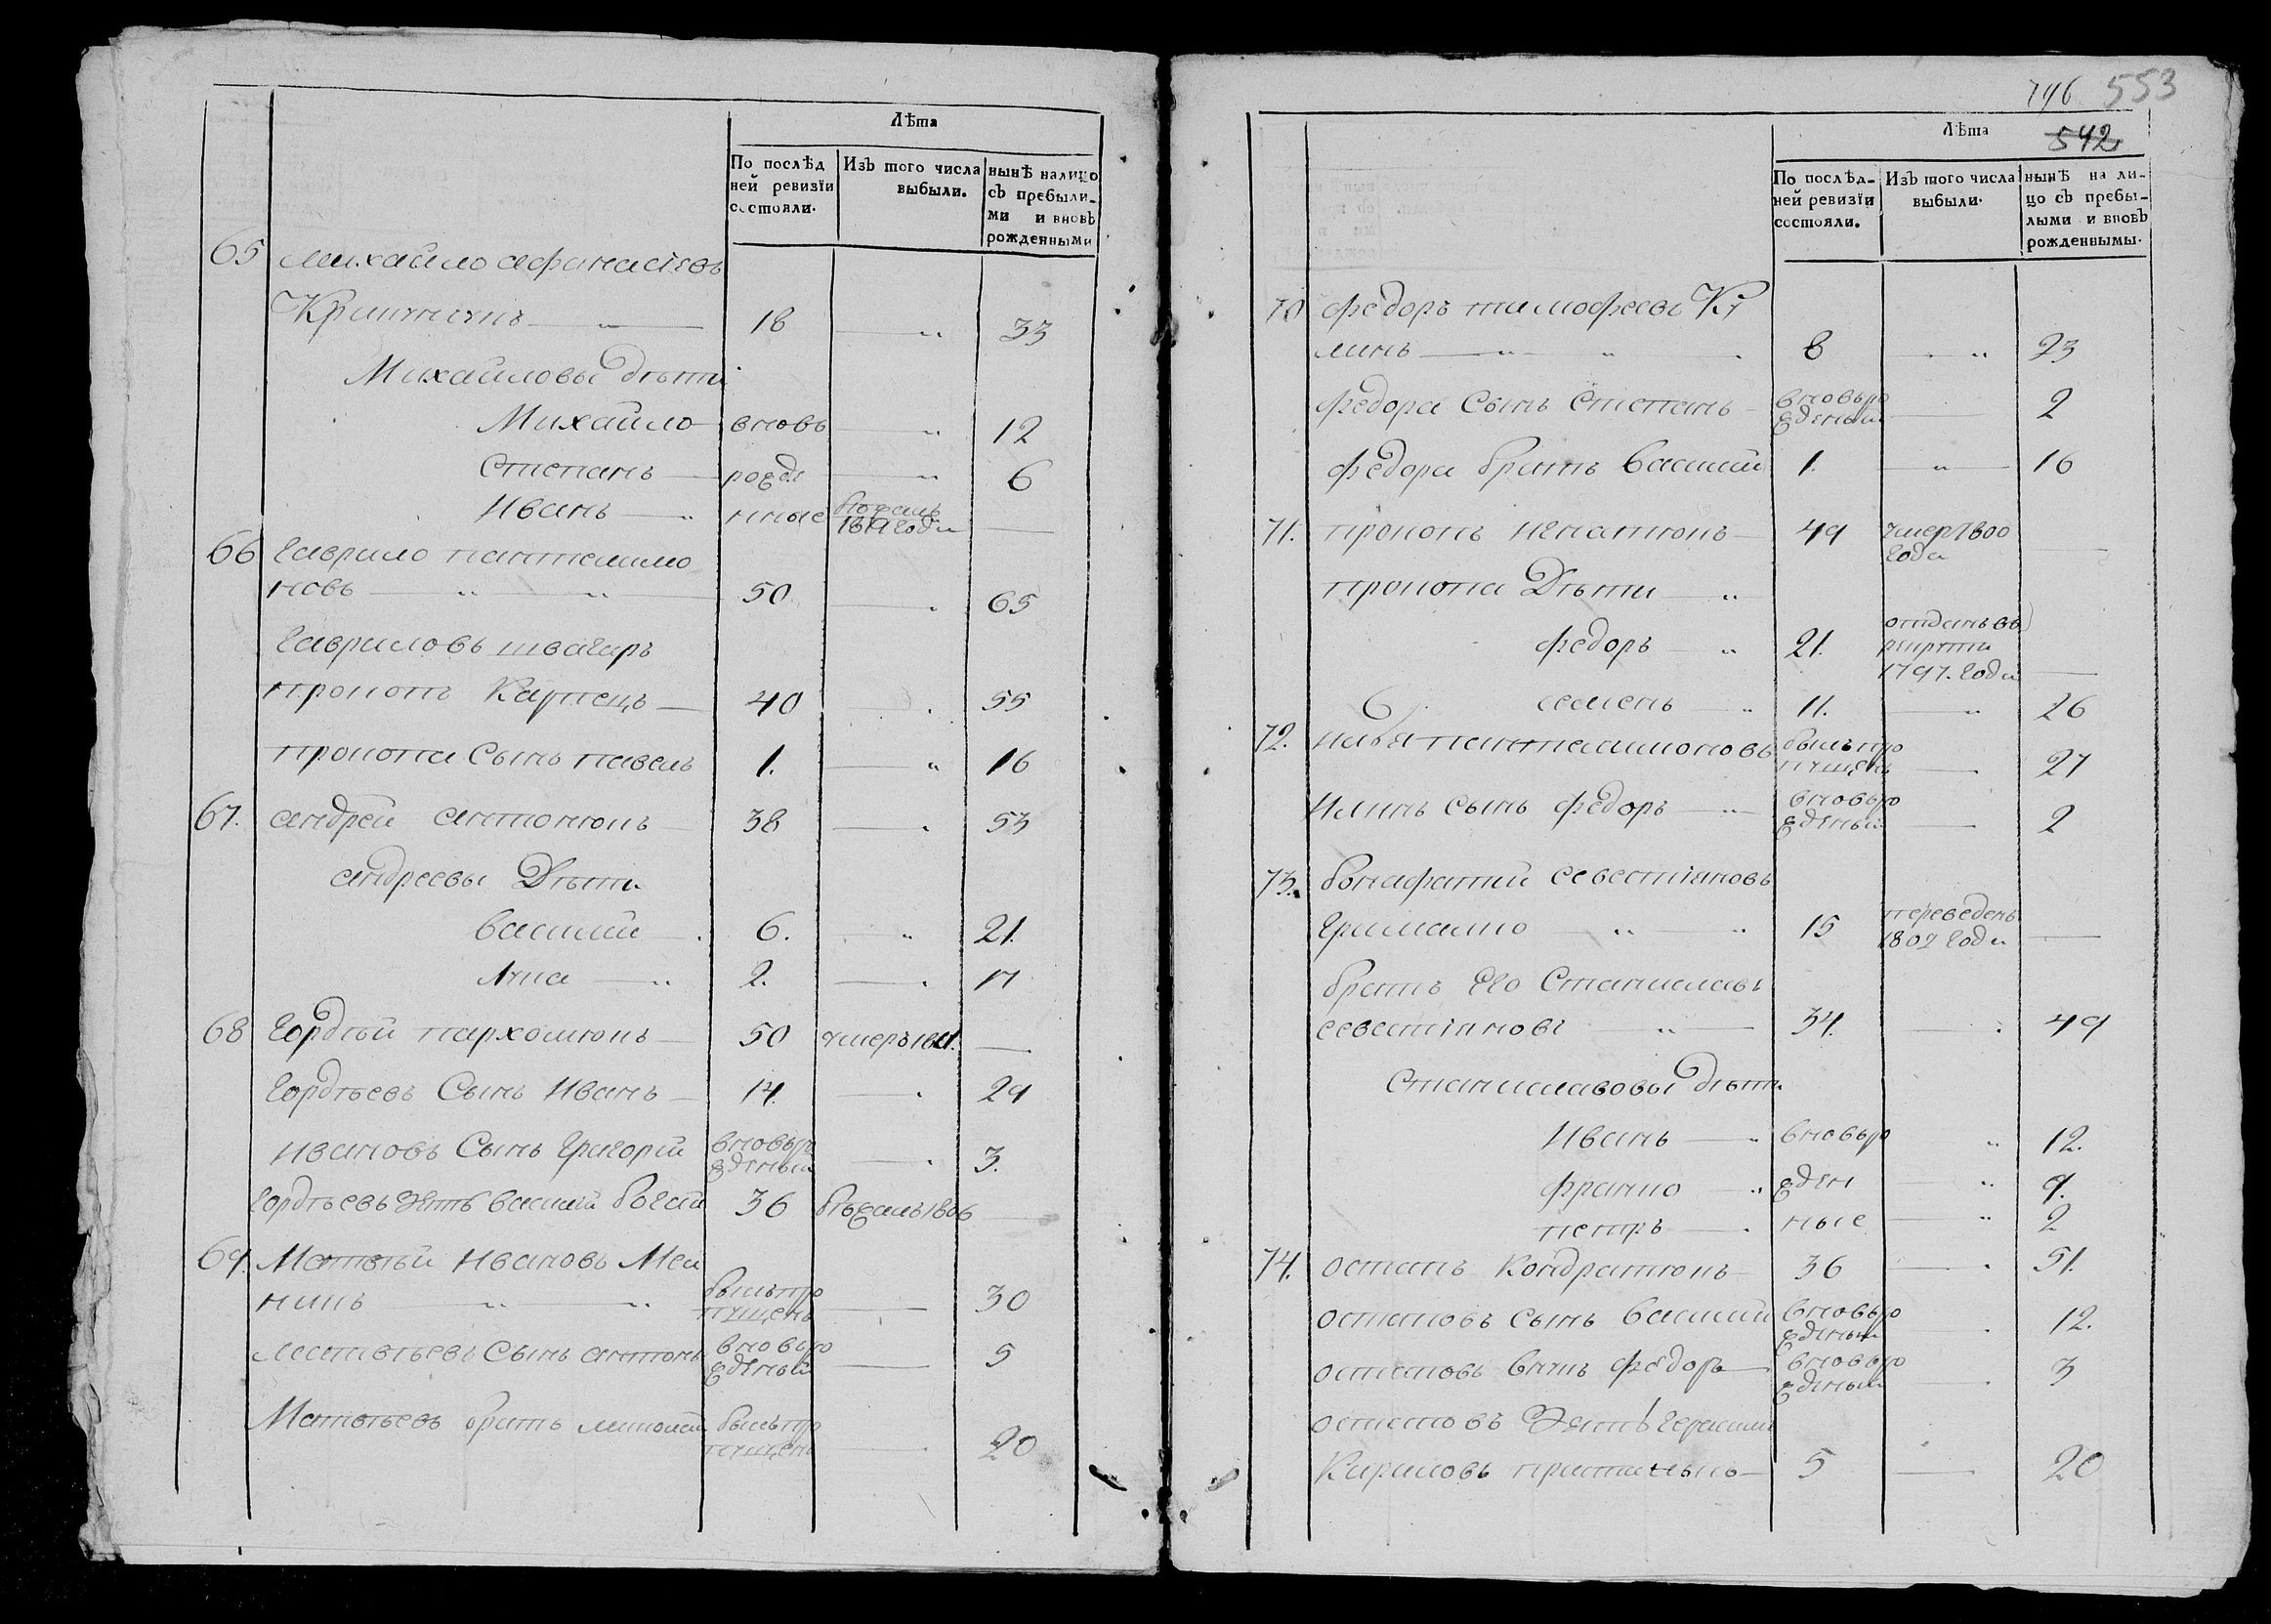 Лѣта
По послѣд
ней ревизїи
состояли.
Изъ того числа
выбыли.
нынѣ налицо
съ пребыли-
ми и вновь
рожденными
65 михайло афанасіевъ
18 " 33
Михайловы дѣти
Михайло вновь " 12
Степанъ рожде " 6
Иванъ " нные 1811 года
66 гаврило пантелимо
новъ " " 50 65
гавриловъ швагеръ
прокопъ 40 55
прокопа Сынъ павелъ 1. " 16
67. андрей антонюкъ 38 53
андреевы Дѣти
василий 6. " 21.
лука " 2. 17
68 гордѣй пархомюкъ 50 умеръ 1811.
гордѣевъ Сынъ Иванъ 14. 29
ивановъ Сынъ григорій вновьро
жденый 3.
гордѣевъ зять василій 36 бѣжалъ 1806
69. Матвѣй Ивановъ Мел
никъ " " былъ про
пущенъ 30
матвѣевъ Сынъ антонъ вновьро
жденый 5
Матвѣевъ братъ былъ про
пущенъ 20
796 553
Лѣта 542
По послѣд-
ней ревизїи
состояли.
Изъ того числа
выбыли.
нынѣ на ли-
цо съ пребы-
лыми и вновь
рожденнымы.
70 федоръ тимофеевъ
" " 8 " 23
федора Сынъ степанъ вновьро
жденый 2
федора братъ василий 1. " 16
71. прокопъ игнатюкъ 49 умеръ 1800
года
прокопа Дѣти "
федоръ " 21. отданъ въ
рекруты
1797. года
семенъ " 11. " 26
72. илья пантелимоновъ былъ про
пущенъ 27
илинъ сынъ федоръ " вновьро
жденый 2
73. бонифатий севестіяновъ
" " 15 переведенъ
1802 года
братъ его Станиславъ
севестіяновъ " 34. 49
Станиславовы дѣти
Иванъ " вновьро " 12.
франко " жден " 9.
петръ ные " 2
74. остапъ кондратюкъ 36 51.
остаповъ сынъ василий вновьро
жденый 12.
остаповъ внукъ федоръ вновьро
жденый 3
остаповъ Зять герасимъ
Кириловъ 5 20